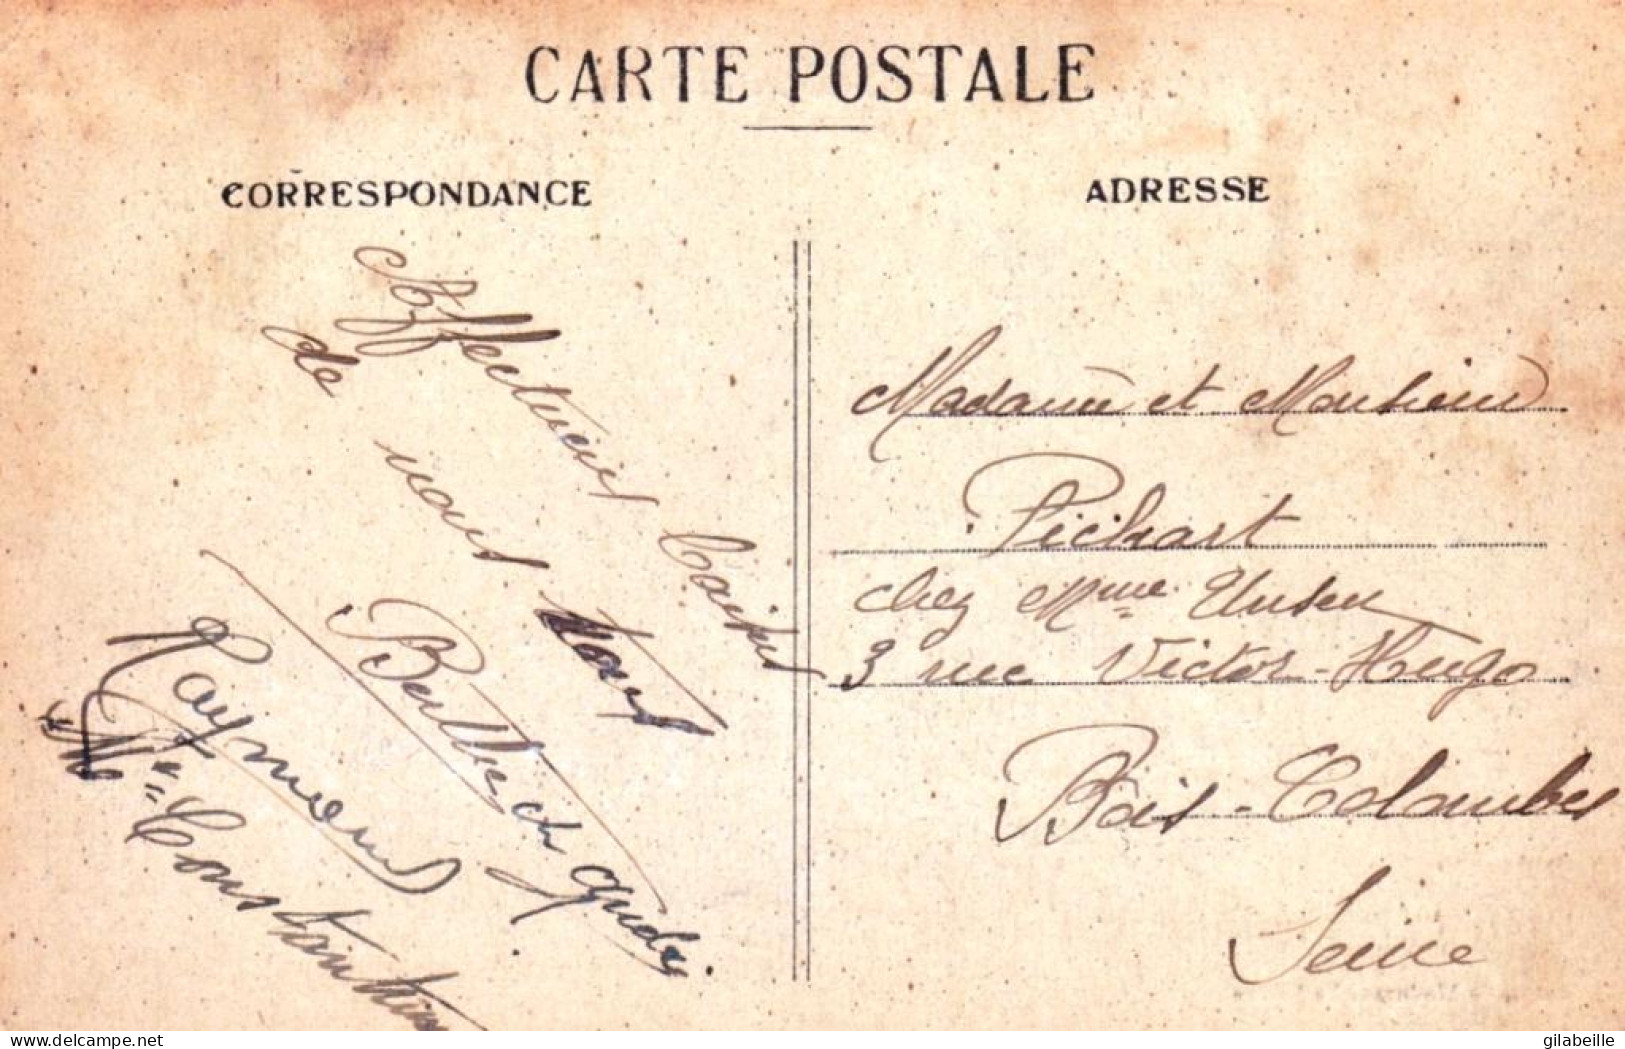 CARTE POSTALE
CORRESPONDANCE
ADRESSE
Affectueux baisers
de nous tous
Berthe et
Raymond
Mme Constantin
Madame et Monsieur
Pichart
chez Mme
3 rue Victor-Hugo
Bois-Colombes
Seine
delcampe.net
gilabeille